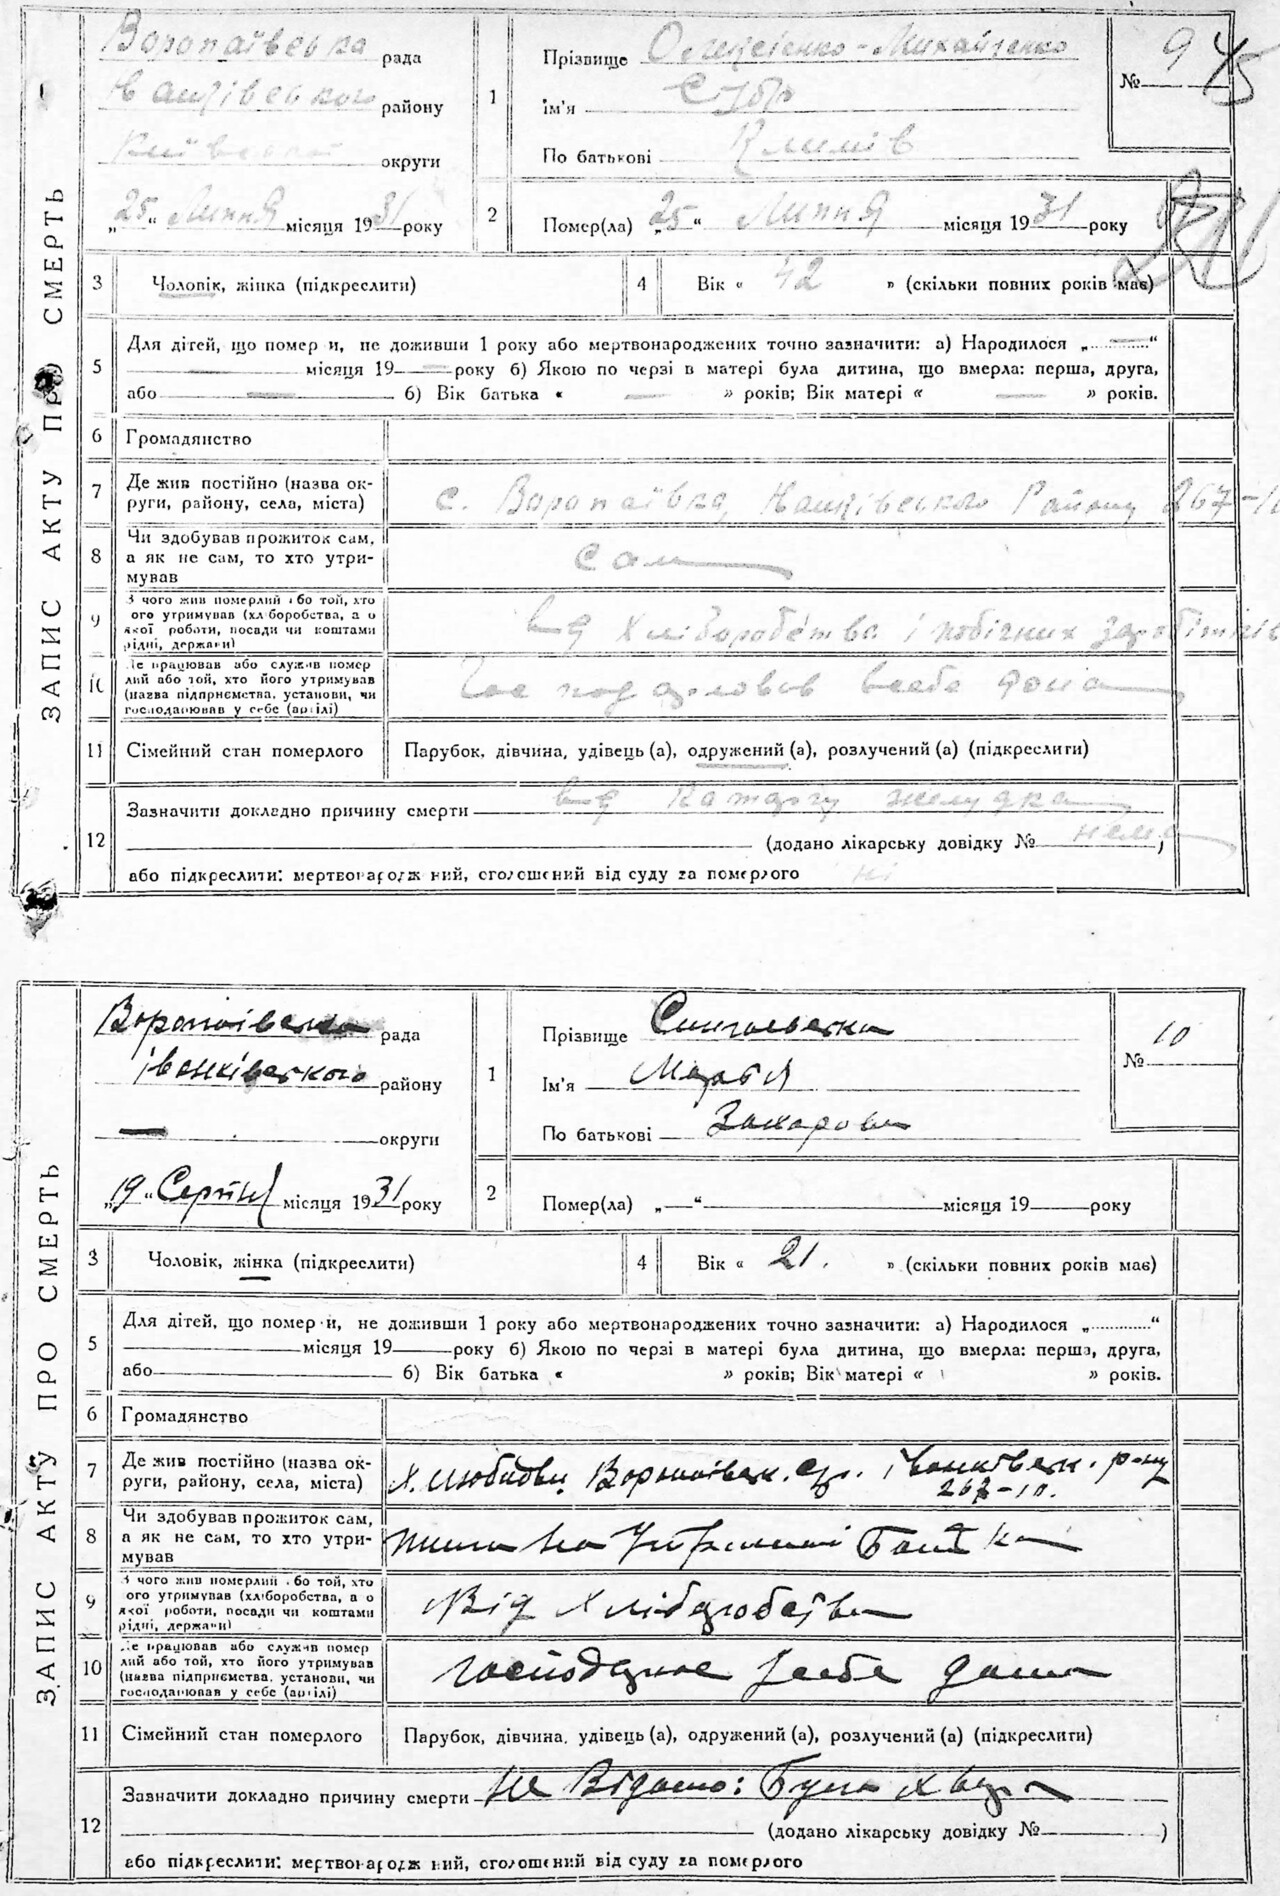 ЗАПИС АКТУ ПРО СМЕРТЬ
Воропаївська рада
району
округи
„25“ Липня місяця 1931 року
1
Прізвище -Михайленко
Ім'я
По батькові Климів
№ 9
45
2
Помер(ла) „25“ Липня місяця 1931 року
3
Чоловік, жінка (підкреслити)
4
Вік « 42 » (скільки повних років має)
5
Для дітей, що померли, не доживши 1 року або мертвонароджених точно зазначити: а) Народилося „ — “
— місяця 19 — року б) Якою по черзі в матері була дитина, що вмерла: перша, друга,
або — б) Вік батька « — » років; Вік матері « — » років.
6
Громадянство
7
Де жив постійно (назва ок-
руги, району, села, міста)
с. Воропаївка, Району 267-
8
Чи здобував прожиток сам,
а як не сам, то хто утри-
мував
Сам
9
З чого жив померлий або той, хто
ого утримував (хліборобства, а о
якої роботи, посади чи коштами
рідні, держави)
від Хліборобства і побічних заробітків
10
Де працював або служив помер
лий або той, хто його утримував
(назва підприємства, установи, чи
господарював у себе (артілі)
всебе дома
11
Сімейний стан померлого
Парубок, дівчина, удівець (а), одружений (а), розлучений (а) (підкреслити)
12
Зазначити докладно причину смерти від Катару желудка
(додано лікарську довідку № нема)
або підкреслити: мертвонароджений, оголошений від суду за померлого ні
ЗАПИС АКТУ ПРО СМЕРТЬ
Воропаївська рада
іванківського району
— округи
„19“ Серпня місяця 1931 року
1
Прізвище
Ім'я
По батькові Захарова
№ 10
2
Помер(ла) „—“ місяця 19 року
3
Чоловік, жінка (підкреслити)
4
Вік « 21. » (скільки повних років має)
5
Для дітей, що померли, не доживши 1 року або мертвонароджених точно зазначити: а) Народилося „ “
місяця 19 року б) Якою по черзі в матері була дитина, що вмерла: перша, друга,
або б) Вік батька « » років; Вік матері « » років.
6
Громадянство
7
Де жив постійно (назва ок-
руги, району, села, міста)
Х. Воропаївськ. с/р. іванківськ. р-ну
267-10.
8
Чи здобував прожиток сам,
а як не сам, то хто утри-
мував
на Утриманні Батька
9
З чого жив померлий або той, хто
ого утримував (хліборобства, а о
якої роботи, посади чи коштами
рідні, держави)
Від Хліборобства
10
Де працював або служив помер
лий або той, хто його утримував
(назва підприємства, установи, чи
господарював у себе (артілі)
дома
11
Сімейний стан померлого
Парубок, дівчина, удівець (а), одружений (а), розлучений (а) (підкреслити)
12
Зазначити докладно причину смерти Не Відомо: Була хвора
(додано лікарську довідку № )
або підкреслити: мертвонароджений, оголошений від суду за померлого